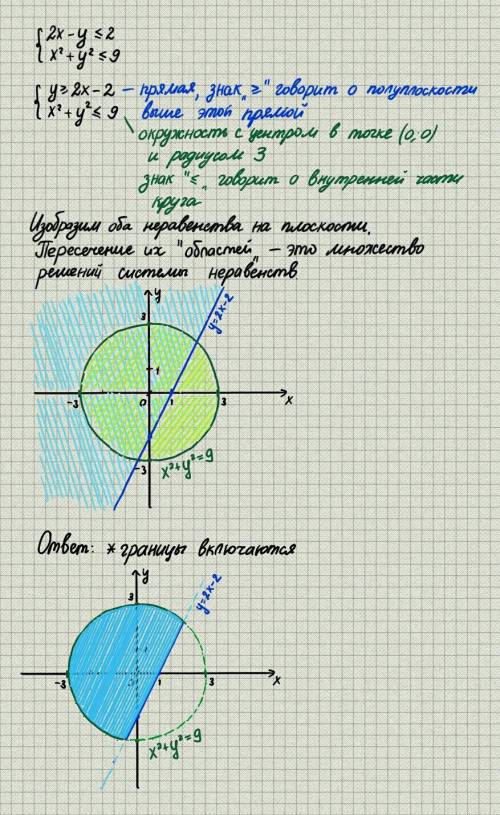 2x - y ≤ 2
x² + y² ≤ 9
y ≥ 2x - 2 — прямая, знак „≥" говорит о полуплоскости
выше этой прямой
x² + y² ≤ 9
окружность с центром в точке (0,0)
и радиусом 3
знак "≤„ говорит о внутренней части
круга
Изобразим оба неравенства на плоскости.
Пересечение их "областей„ – это множество
решений систем неравенств
y
3
y=2x-2
1
-3
0
1
3
x
-3
x²+y²=9
Ответ: *границы включаются
y
3
y=2x-2
-3
1
3
x
x²+y²=9